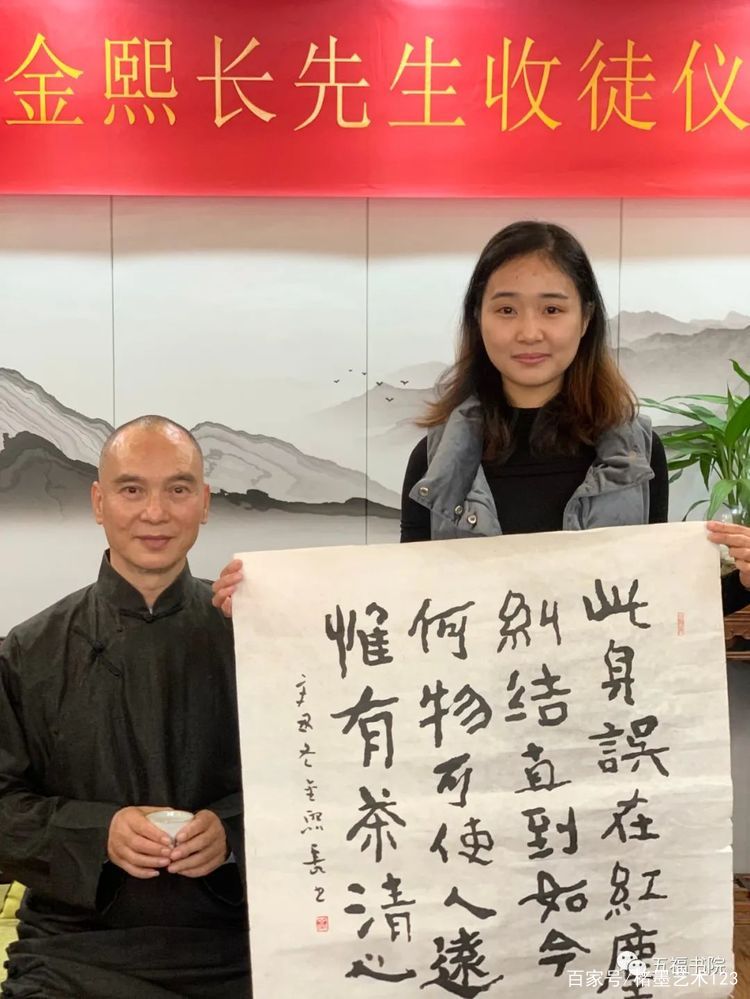 金熙长先生收徒仪
此身誤在紅塵
糾结直到如今
何物可使人遠
惟有茶清心
辛丑冬金熙長书
五福书院
百家号/楮墨艺术123